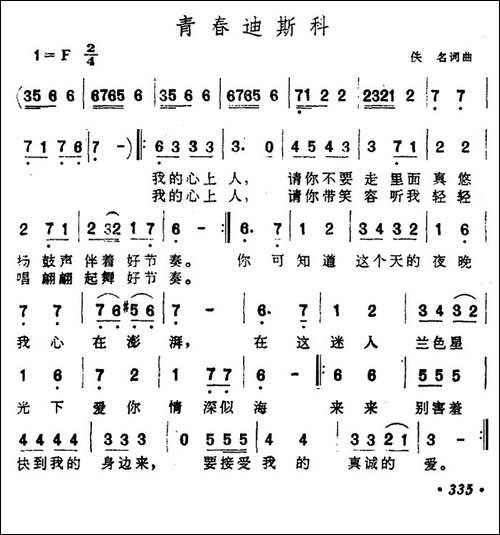 青春迪斯科
1=F 2/4
佚 名词曲
(35 6 6 | 6765 6 | 35 6 6 | 6765 6 | 71 2 2 | 2321 2 | 7 7 |
71 76 | 7 -) ‖: 6 3 3 3 | 3· 0 | 4 5 4 3 | 3 71 | 2 2 |
我的心上 人, 请你不要 走 里面 真 悠
我的心上 人, 请你带笑 容 听我 轻 轻
2 71 | 2 32 17 | 6 - :‖ 6· 7 | 1 2 | 3432 1 | 6 6 |
扬 鼓声 伴着 好节 奏。 你 可 知 道 这个天的 夜 晚
唱 翩翩 起舞 好节 奏。
7 7 | 76 #56 | 7 - | 6· 7 | 1 2 | 34 32 |
我 心 在 澎 湃, 在 这 迷 人 兰色里
1 6 | 7 2 | 1 77 | 6 - :‖ 6 6 | 5 5 5 |
光 下 爱 你 情 深似 海 来 来 别害羞
4 4 4 4 | 3 3 3 | 0 555 | 4 2 | 33 21 | 3 - ‖
快到我的 身边来, 要接受 我 的 真诚的 爱。
· 335 ·